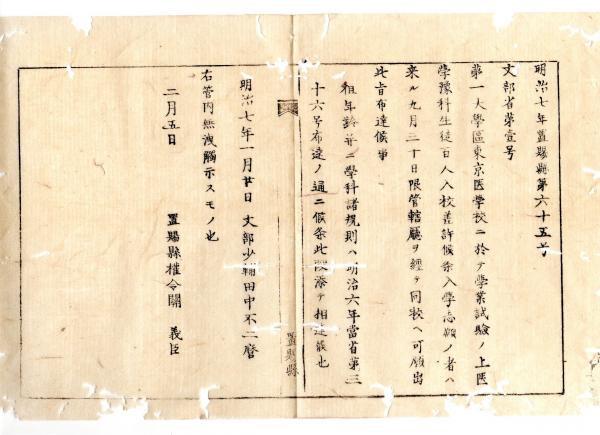 明治七年置賜縣第六十五号
文部省第壹号
第一大學區東京医學校ニ於テ学業試験ノ上医
學豫科生徒百人入校差許候条入学志願ノ者ハ
来ル九月三十日限管轄廳ヲ經テ同校ヘ可願出
此旨布達候事
但年齢并ニ學科諸規則ハ明治六年當省第三
十六号布達ノ通ニ候条此段添テ相達候也
明治七年一月廿日 文部少輔田中不二麿
右管内無洩觸示スモノ也
二月五日 置賜縣權令關 義臣
置賜縣